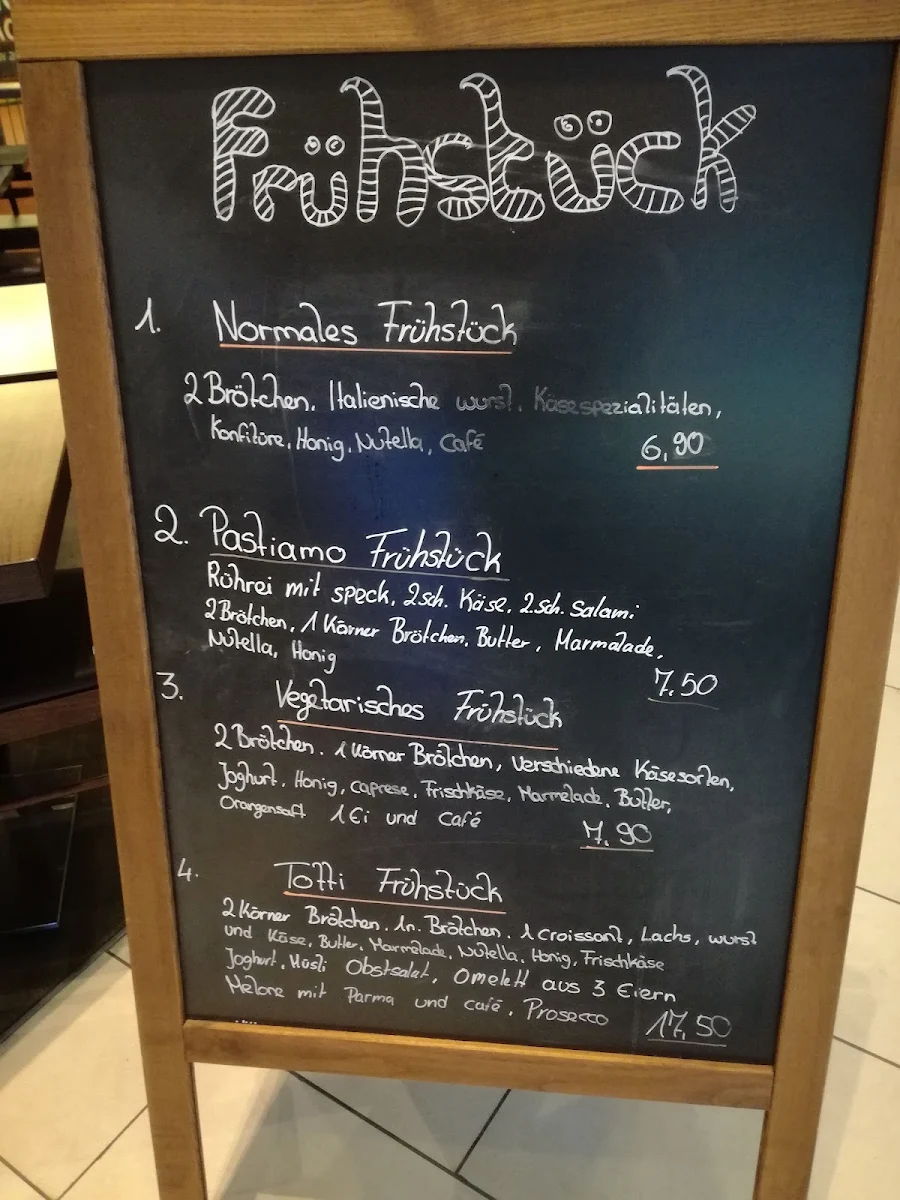 Frühstück
1. Normales Frühstück
2 Brötchen, Italienische wurst, Käsespezialitäten,
Konfitüre, Honig, Nutella, Café 6,90
2. Pastiamo Frühstück
Rührei mit speck, 2 sch. Käse, 2 sch. Salami
2 Brötchen, 1 Körner Brötchen, Butter, Marmalade,
Nutella, Honig 7,50
3. Vegetarisches Frühstück
2 Brötchen, 1 Körner Brötchen, verschiedene Käsesorten,
Joghurt, Honig, caprese, Frischkäse, Marmelade, Butter,
Orangensaft 1 Ei und Café 7,90
4. Totti Frühstück
2 Körner Brötchen, 1n. Brötchen, 1 Croissant, Lachs, wurst
und Käse, Butter, Marmelade, Nutella, Honig, Frischkäse
Joghurt, Müsli Obstsalat, Omelett aus 3 Eiern
Melone mit Parma und café, Prosecco 17,50